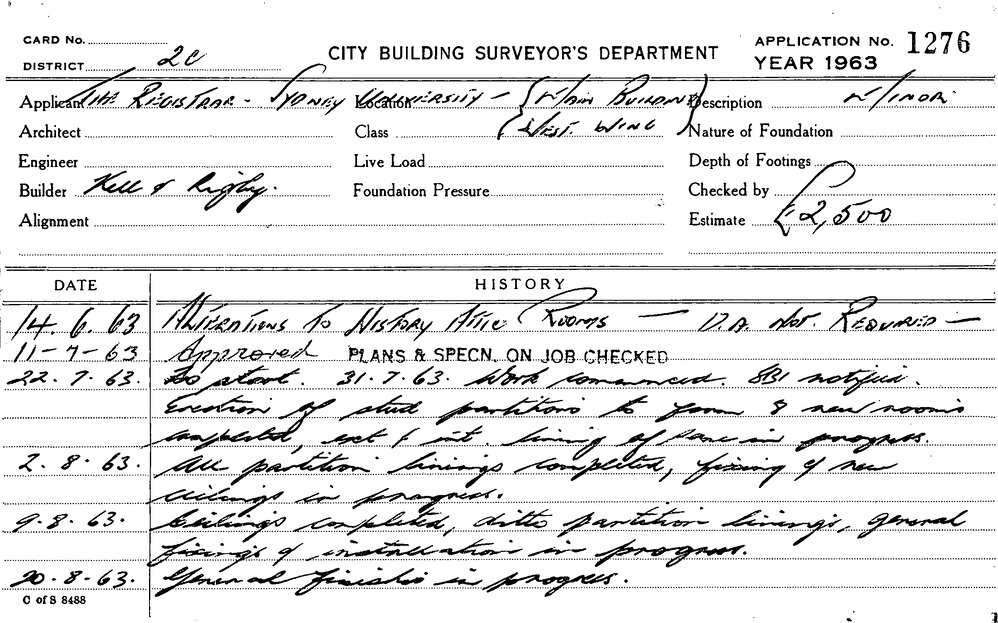 CARD No.
DISTRICT 2C
CITY BUILDING SURVEYOR'S DEPARTMENT
APPLICATION No. 1276
YEAR 1963
Applicant The Registrar - Sydney University - (Main Building
West. Wing)
Location
Description Minor.
Architect
Class
Nature of Foundation
Engineer
Live Load
Depth of Footings
Builder Kell & Rigby.
Foundation Pressure
Checked by
Alignment
Estimate £2,500
DATE HISTORY
14.6.63 Alterations to History Attic Rooms — D.A. Not. Required —
11-7-63 Approved PLANS & SPECN. ON JOB CHECKED
22.7.63. To start. 31.7.63. Work commenced. notified.
Erection of stud partitions to form 8 new rooms
completed, ext & int. lining of same in progress.
2.8.63. All partition linings completed, fixing of new
ceilings in progress.
9.8.63. Ceilings completed, ditto partition linings, general
fixings & installation in progress.
20.8.63. General finishes in progress.
C of S 8488